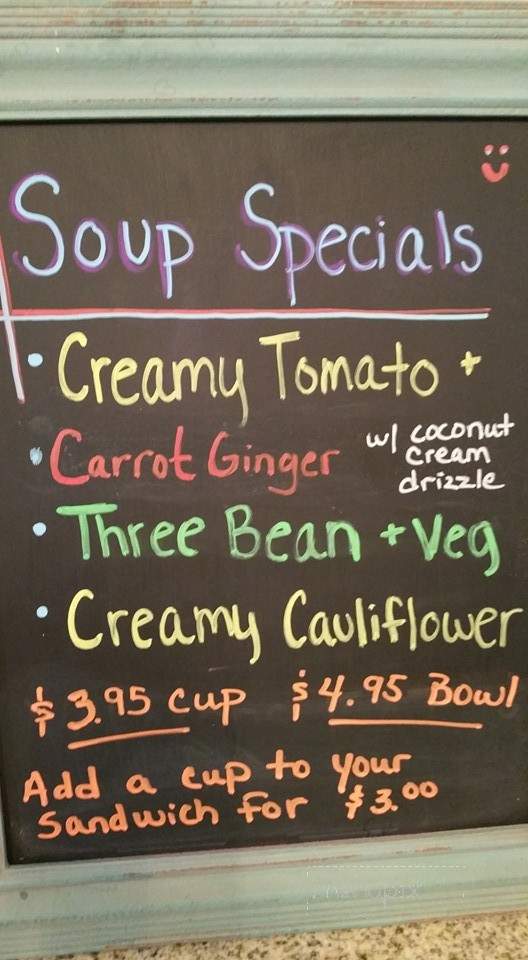 Soup Specials
• Creamy Tomato +
• Carrot Ginger w/ coconut
cream
drizzle
• Three Bean + Veg
• Creamy Cauliflower
$3.95 cup $4.95 Bowl
Add a cup to your
Sandwich for $3.00